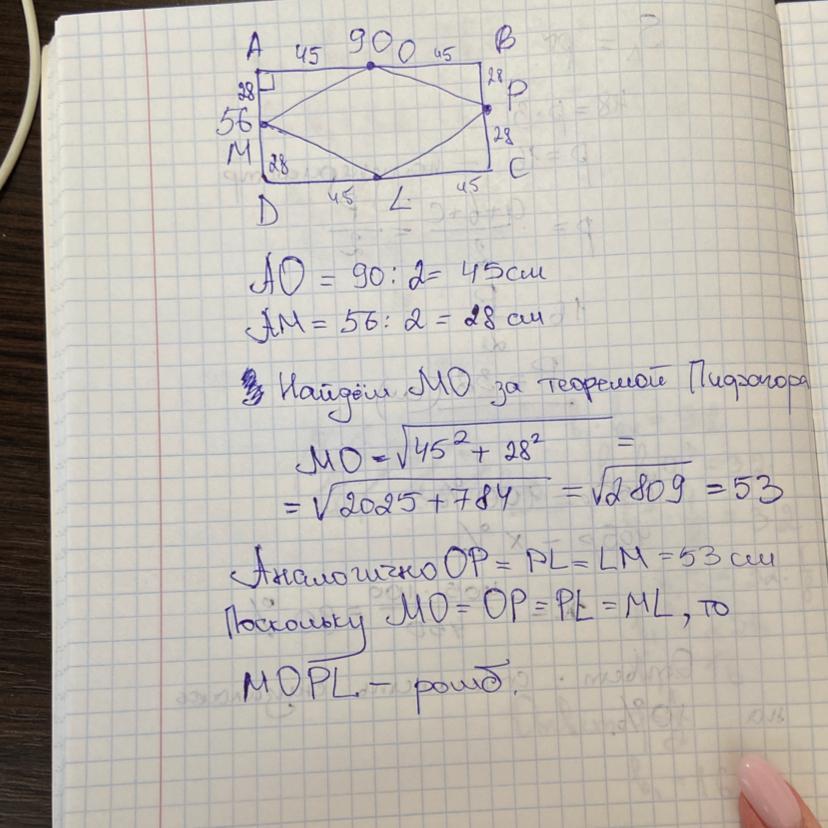 A 45 90 O 45 B
28 28
56 P
M 28 28
D 45 L 45 C
AO = 90 : 2 = 45 см
AM = 56 : 2 = 28 см
Найдём МО за теоремой Пифагора
MO = √45² + 28² =
= √2025 + 784 = √2809 = 53
Аналогично OP = PL = LM = 53 см
Поскольку MO = OP = PL = ML, то
MOPL – ромб.